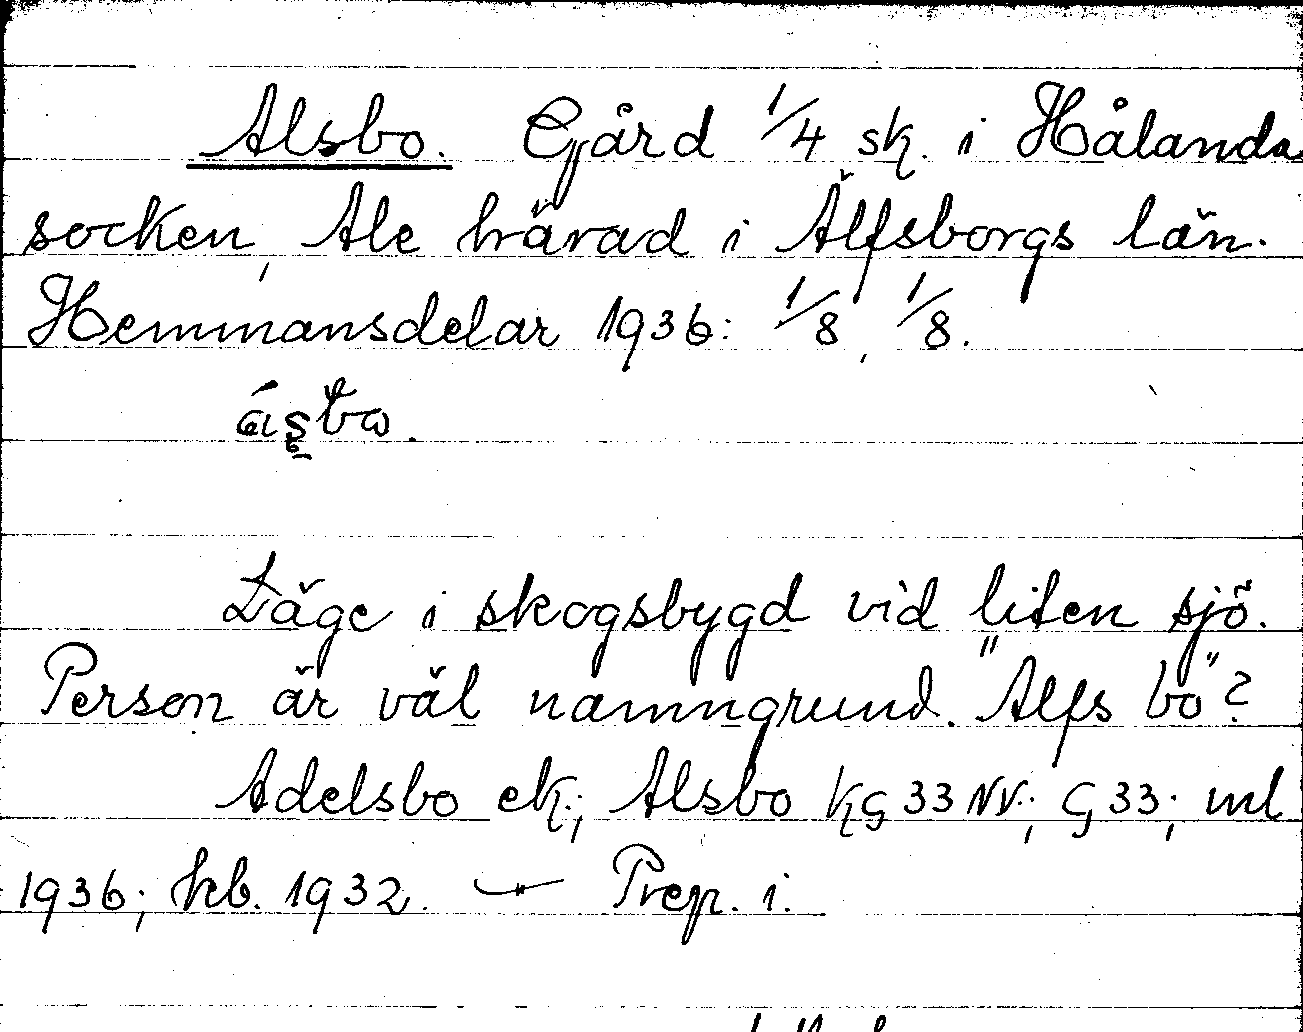 Alsbo. Gård 1/4 sk. i Hålanda
socken, Ale härad i Älfsborgs län.
Hemmansdelar 1936: 1/8, 1/8.
Läge i skogsbygd vid liten sjö.
Person är väl namngrund. "Alfs bo"?
Adelsbo ek; Alsbo KG 33 NV.; G 33; ml
1936; kb. 1932. — Prep. i.